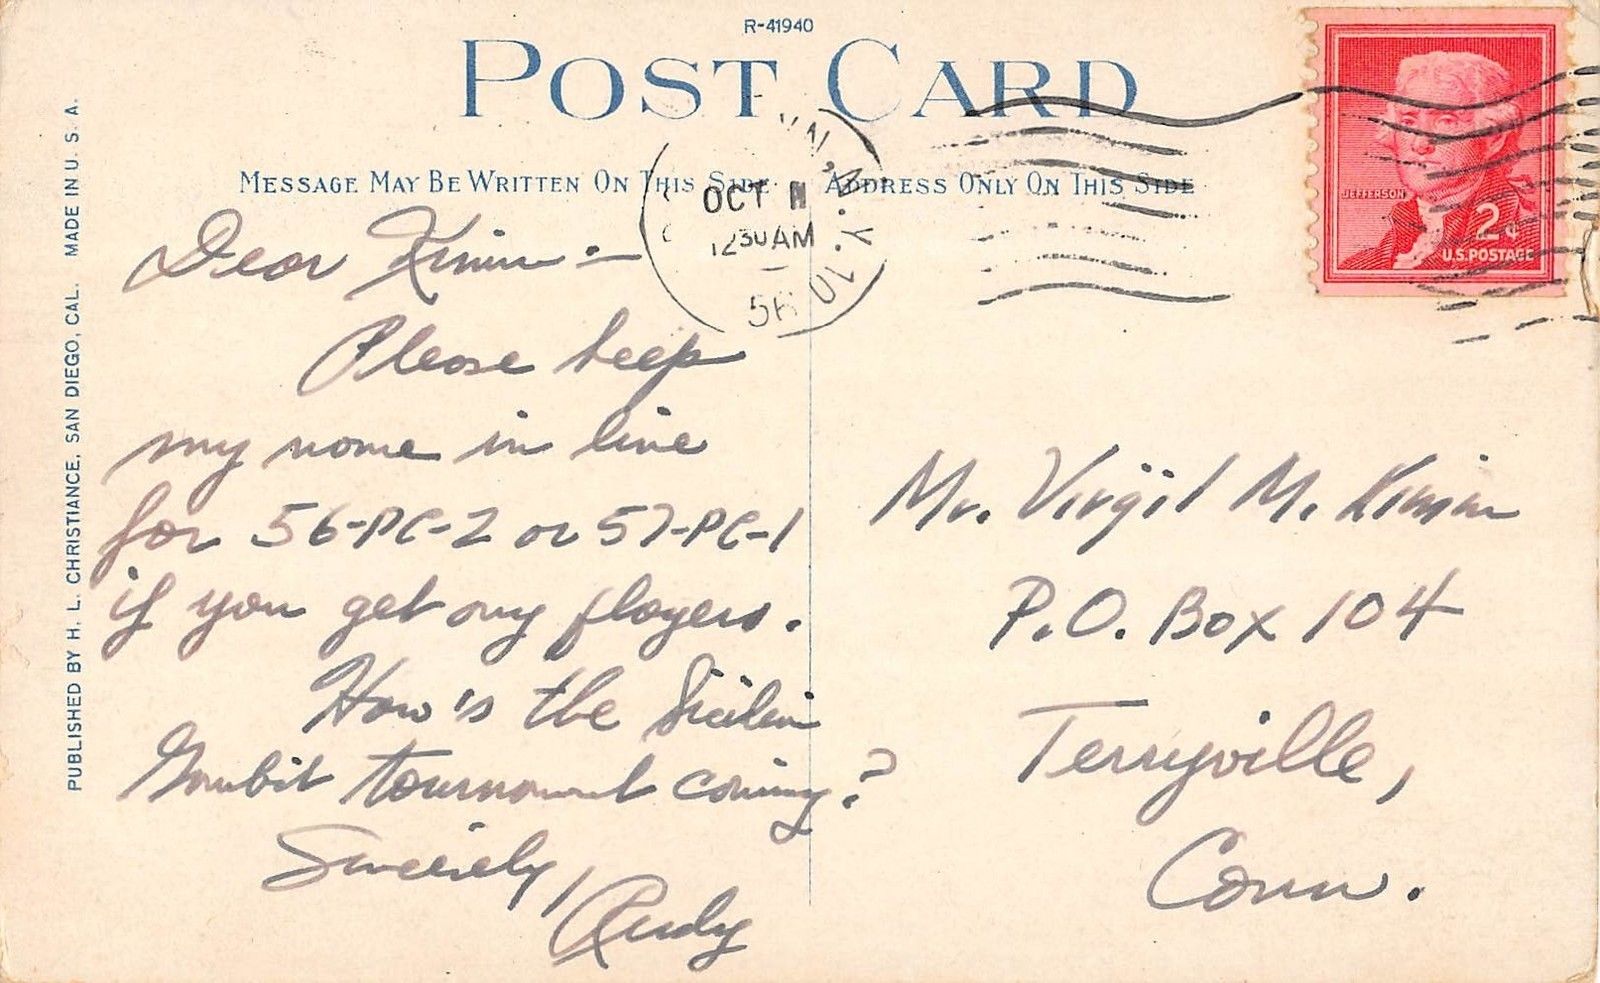 R-41940
POST CARD
MESSAGE MAY BE WRITTEN ON THIS SIDE
ADDRESS ONLY ON THIS SIDE
PUBLISHED BY H. L. CHRISTIANCE, SAN DIEGO, CAL. MADE IN U. S. A.
OCT
12 30 AM
56
N.Y.
JEFFERSON
2¢
U.S. POSTAGE
Dear Kimm:—
Please keep
my name in line
for 56-PC-2 or 57-PC-1
if you get any players.
How's the Sicilian
Gambit tournament coming?
Sincerely,
Rudy
Mr. Virgil M. Kimm
P.O. Box 104
Terryville,
Conn.